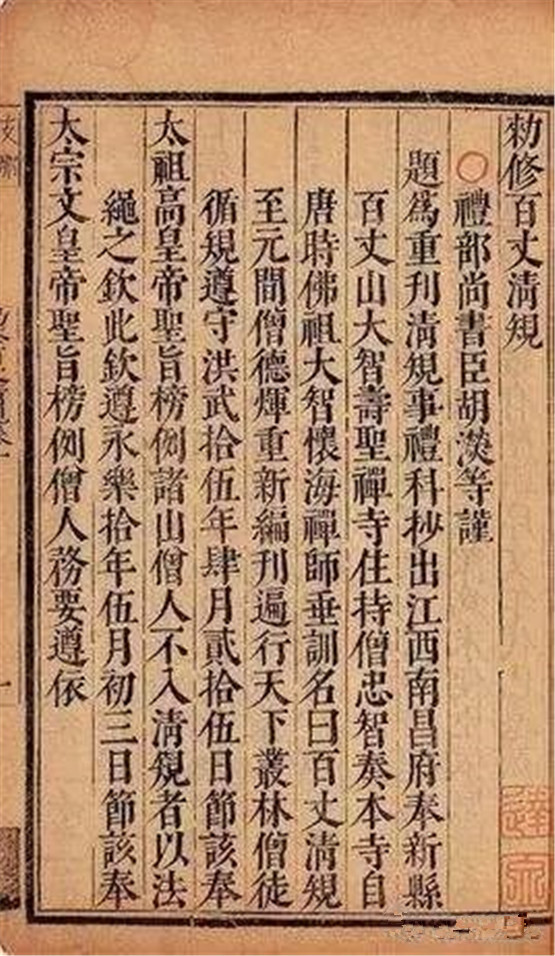 勅修百丈淸規
禮部尚書臣胡濙等謹
題爲重刊淸規事禮科抄出江西南昌府奉新縣
百丈山大智壽聖禪寺住持僧忠智奏本寺自
唐時佛祖大智懷海禪師垂訓名曰百丈淸規
至元間僧德煇重新編刊遍行天下叢林僧徒
循規遵守洪武拾伍年肆月貳拾伍日節該奉
太祖高皇帝聖旨榜例諸山僧人不入淸規者以法
繩之欽此欽遵永樂拾年伍月初三日節該奉
太宗文皇帝聖旨榜例僧人務要遵依